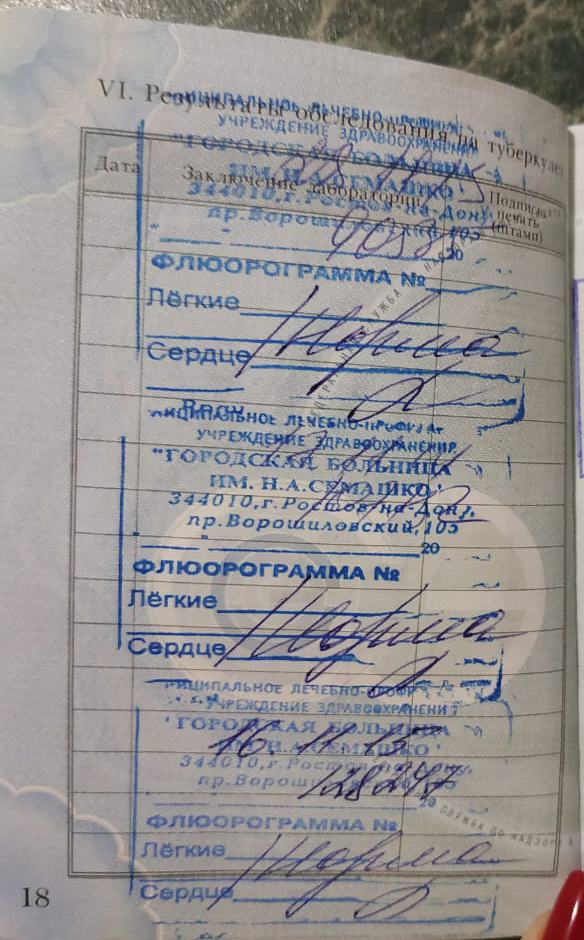 VI. Результаты обследования на туберкулез
Дата
Заключение лаборатории
Подпись,
печать
(штамп)
УЧРЕЖДЕНИЕ ЗДРАВООХРАНЕНИЯ
"ГОРОДСКАЯ БОЛЬНИЦА
ИМ. Н.А.СЕМАШКО"
344010,г.Ростов-на-Дону,
пр.Ворошиловский,105
20
ФЛЮОРОГРАММА №
Лёгкие
Норма
Сердце
Врач
МУНИЦИПАЛЬНОЕ ЛЕЧЕБНО-ПРОФИЛАК
УЧРЕЖДЕНИЕ ЗДРАВООХРАНЕНИЯ
"ГОРОДСКАЯ БОЛЬНИЦА
ИМ. Н.А.СЕМАШКО"
344010,г.Ростов-на-Дону,
пр.Ворошиловский,105
20
ФЛЮОРОГРАММА №
Лёгкие
Норма
Сердце
УЧРЕЖДЕНИЕ ЗДРАВООХРАНЕНИ
"ГОРОДСКАЯ БОЛЬНИЦА
ИМ. Н.А.СЕМАШКО"
344010,г.Ростов-на-Дону,
128247
20
ФЛЮОРОГРАММА №
Лёгкие
Норма
Сердце
18